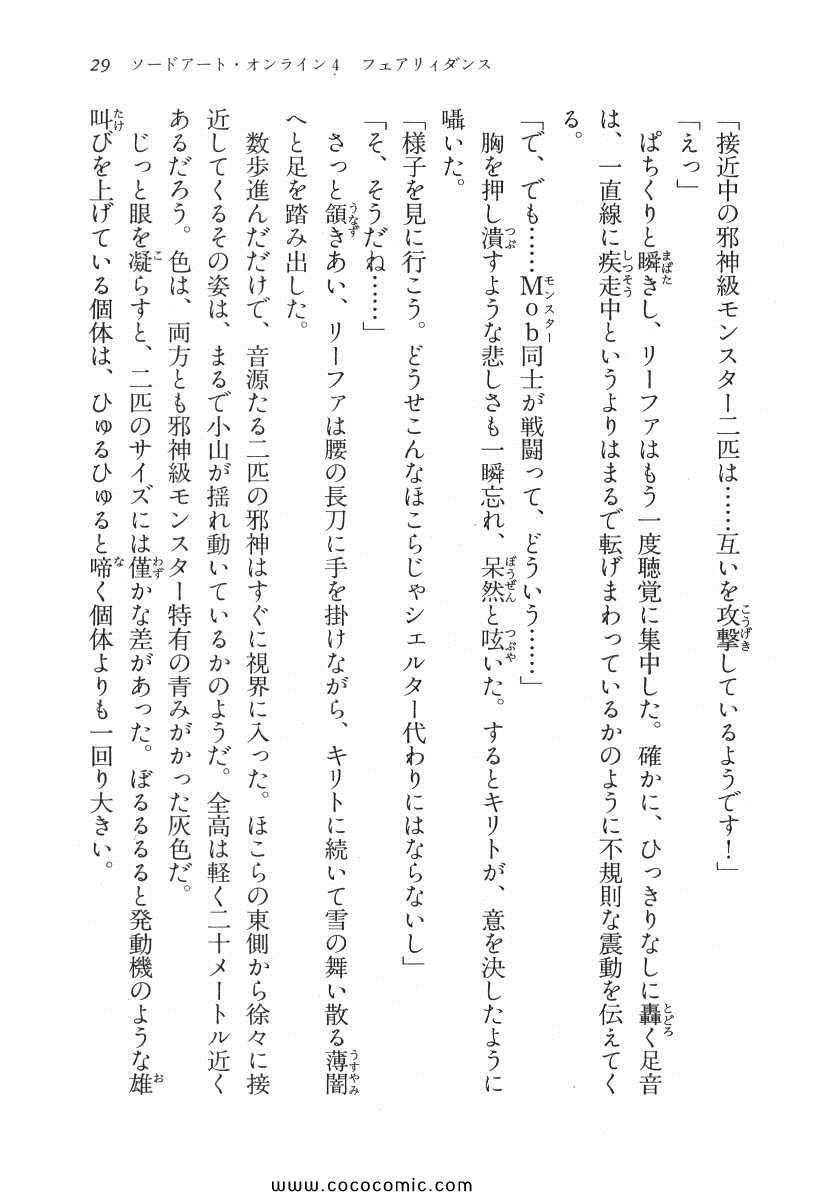 29　ソードアート・オンライン4　フェアリィダンス
「接近中の邪神級モンスター二匹は……互いを攻撃しているようです！」
「えっ」
ぱちくりと瞬きし、リーファはもう一度聴覚に集中した。確かに、ひっきりなしに轟く足音
は、一直線に疾走中というよりはまるで転げまわっているかのように不規則な震動を伝えてく
る。
「で、でも……Mob同士が戦闘って、どういう……」
胸を押し潰すような悲しさも一瞬忘れ、呆然と呟いた。するとキリトが、意を決したように
囁いた。
「様子を見に行こう。どうせこんなほこらじゃシェルター代わりにはならないし」
「そ、そうだね……」
さっと頷きあい、リーファは腰の長刀に手を掛けながら、キリトに続いて雪の舞い散る薄闇
へと足を踏み出した。
数歩進んだだけで、音源たる二匹の邪神はすぐに視界に入った。ほこらの東側から徐々に接
近してくるその姿は、まるで小山が揺れ動いているかのようだ。全高は軽く二十メートル近く
あるだろう。色は、両方とも邪神級モンスター特有の青みがかった灰色だ。
じっと眼を凝らすと、二匹のサイズには僅かな差があった。ぼるるるると発動機のような雄
叫びを上げている個体は、ひゅるひゅると啼く個体よりも一回り大きい。
www.cococomic.com